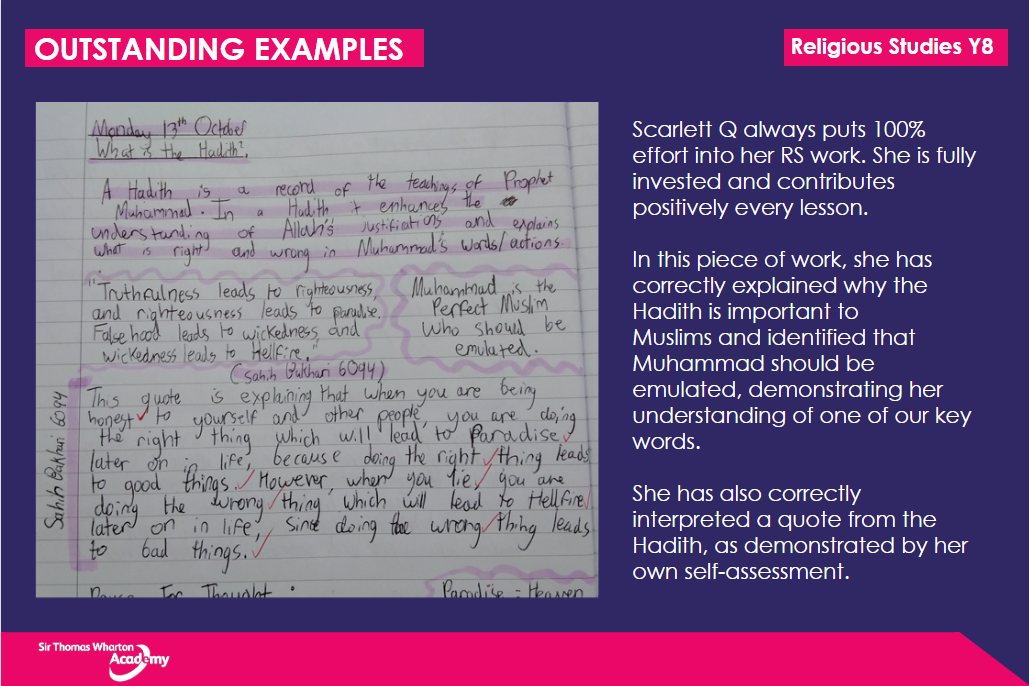 OUTSTANDING EXAMPLES
Religious Studies Y8
Monday 13th October
What is the Hadith?.
A Hadith is a record of the teachings of Prophet
Muhammad. In a Hadith it enhances the
understanding of Allah's justifications and explains
what is right and wrong in Muhammad's words/actions.
"Truthfulness leads to righteousness,
and righteousness leads to paradise.
Falsehood leads to wickedness and
wickedness leads to Hellfire."
(Sahih Bukhari 6094)
Muhammad is the
Perfect Muslim
Who should be
emulated.
Sahih Bukhari 6094
This quote is explining that when you are being
honest to yourself and other people, you are doing
the right thing which will lead to paradise
later on in life, because doing the right thing leads
to good things. However, when you lie, you are
doing the wrong thing which will lead to Hellfire
later on in life, since doing the wrong thing leads
to bad things.
For Thought
Paradise = Heaven
Scarlett Q always puts 100%
effort into her RS work. She is fully
invested and contributes
positively every lesson.
In this piece of work, she has
correctly explained why the
Hadith is important to
Muslims and identified that
Muhammad should be
emulated, demonstrating her
understanding of one of our key
words.
She has also correctly
interpreted a quote from the
Hadith, as demonstrated by her
own self-assessment.
Sir Thomas Wharton
Academy